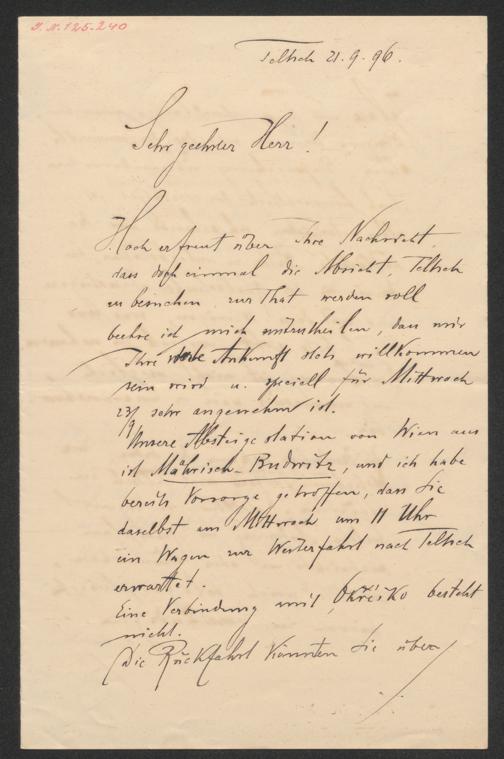 J. N. 125.240
Teltsch 21.9.96.
Sehr geehrter Herr!
Hoch erfreut über Ihre Nachricht,
dass doch einmal die Absicht, Teltsch
zu besuchen, zur That werden soll
beehre ich mich mitzutheilen, dass mir
Ihre werte Ankunft stets willkommen
sein wird u. speciell für Mittwoch
23/9 sehr angenehm ist.
Unsere Absteige station von Wien aus
ist Mährisch-Budwitz, und ich habe
bereits Vorsorge getroffen, dass Sie
daselbst am Mittwoch um 11 Uhr
ein Wagen zur Weiterfahrt nach Teltsch
erwartet.
Eine Verbindung mit Okřísko besteht
nicht.
Die Rückfahrt könnten Sie über